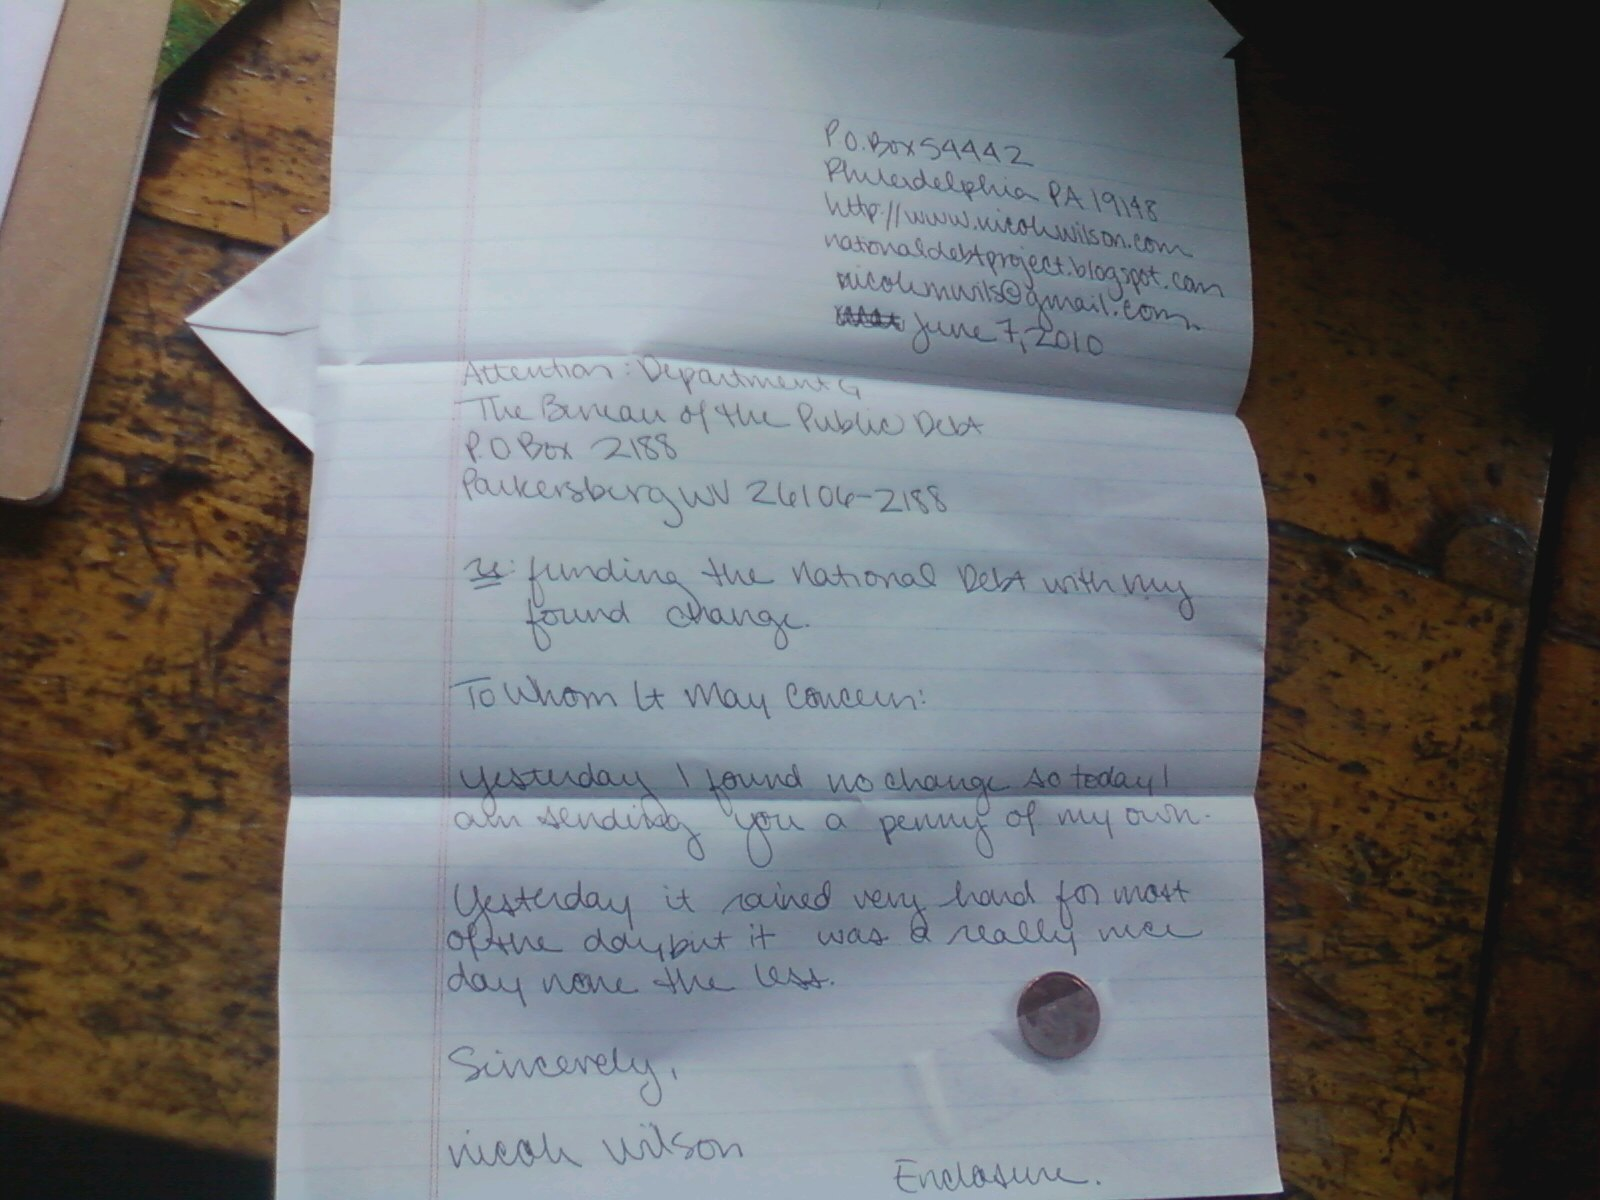 P.O. Box 54442
Philadelphia PA 19148
http://www.nicolewilson.com
nationaldebtproject.blogspot.com
nicolemwils@gmail.com
June 7, 2010
Attention: Department G
The Bureau of the Public Debt
P.O Box 2188
Parkersburg WV 26106-2188
re: funding the National Debt with my
found change.
To Whom It May Concern:
Yesterday I found no change so today I
am sending you a penny of my own.
Yesterday it rained very hard for most
of the day but it was a really nice
day none the less.
Sincerely,
nicole wilson
Enclosure.